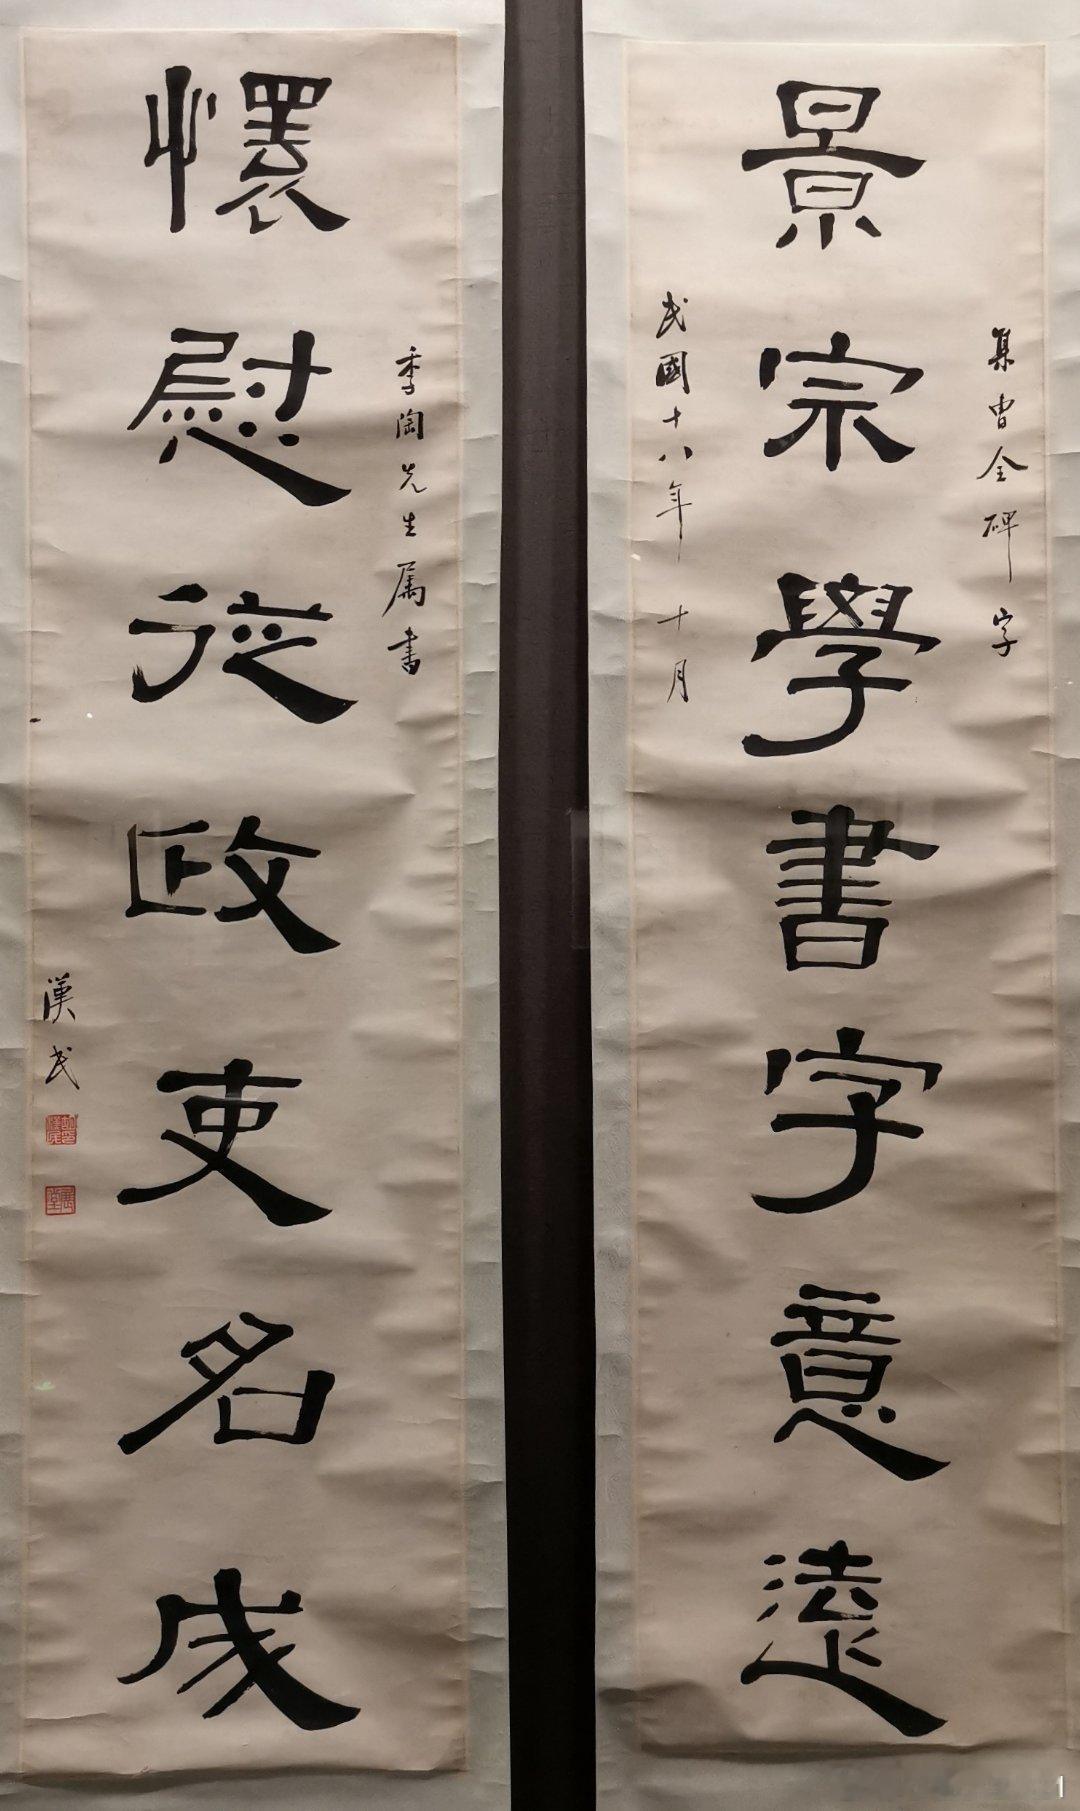 集曹全碑字
景宗學書字意遠
民國十八年 十月
季陶先生属書
懷慰從政吏名成
漢民
胡漢民印
展堂